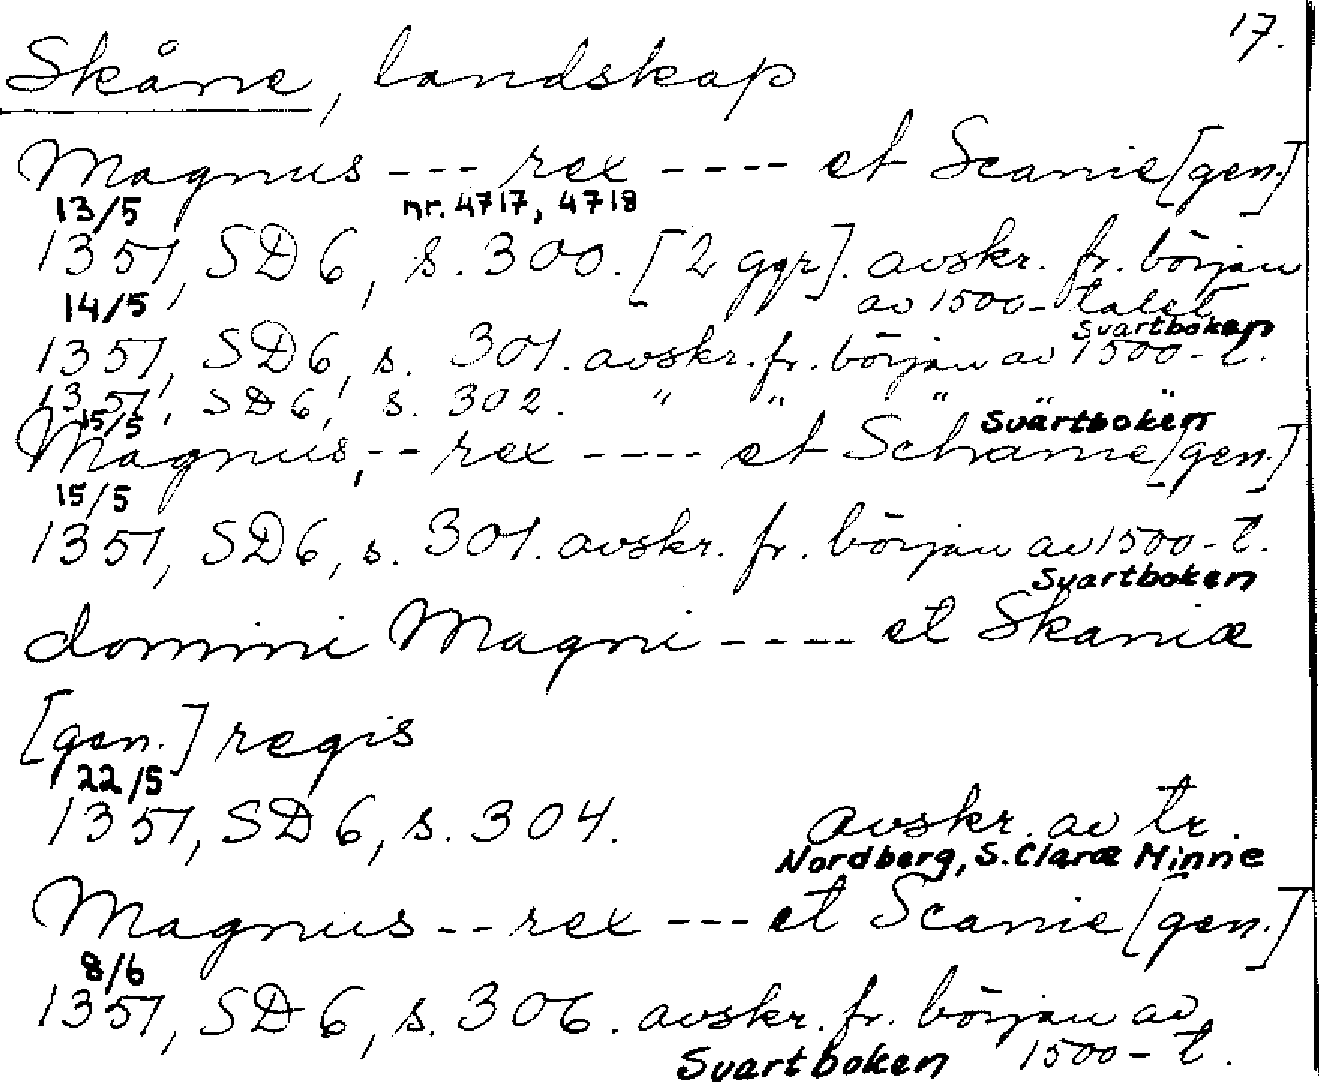 17.
Skåne, landskap
Magnus --- rex ---- et Scanie [gen.]
13/5 nr. 4717, 4718
1351, SD 6, s. 300. [2 ggr]. avskr. fr. början
14/5 av 1500-talet
Svartboken
1351, SD 6, s. 301. avskr. fr. början av 1500-t.
1351, SD 6, s. 302. " " " "
15/5 Svartboken
Magnus, -- rex ---- et Schanie [gen.]
15/5
1351, SD 6, s. 301. avskr. fr. början av 1500-t.
Svartboken
domini Magni ---- et Skaniæ
[gen.] regis
22/5
1351, SD 6, s. 304. avskr. av tr.
Nordberg, S. Claræ Minne
Magnus -- rex --- et Scanie [gen.]
8/6
1351, SD 6, s. 306. avskr. fr. början av
Svartboken 1500-t.